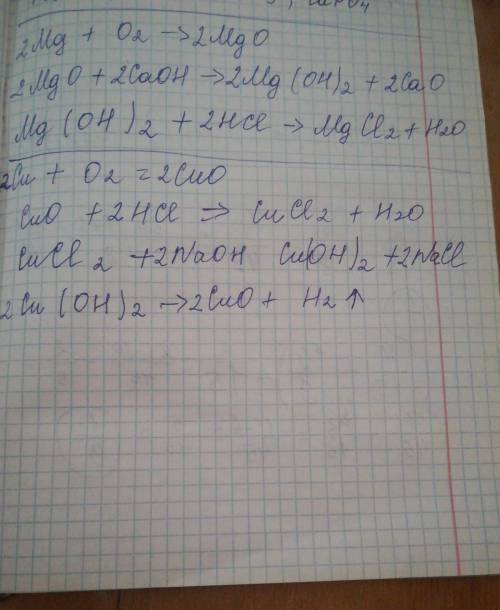 2Mg + O2 → 2MgO
2MgO + 2CaOH → 2Mg(OH)2 + 2CaO
Mg(OH)2 + 2HCl → MgCl2 + H2O
2Cu + O2 = 2CuO
CuO + 2HCl ⇒ CuCl2 + H2O
CuCl2 + 2NaOH Cu(OH)2 + 2NaCl
2Cu(OH)2 → 2CuO + H2↑